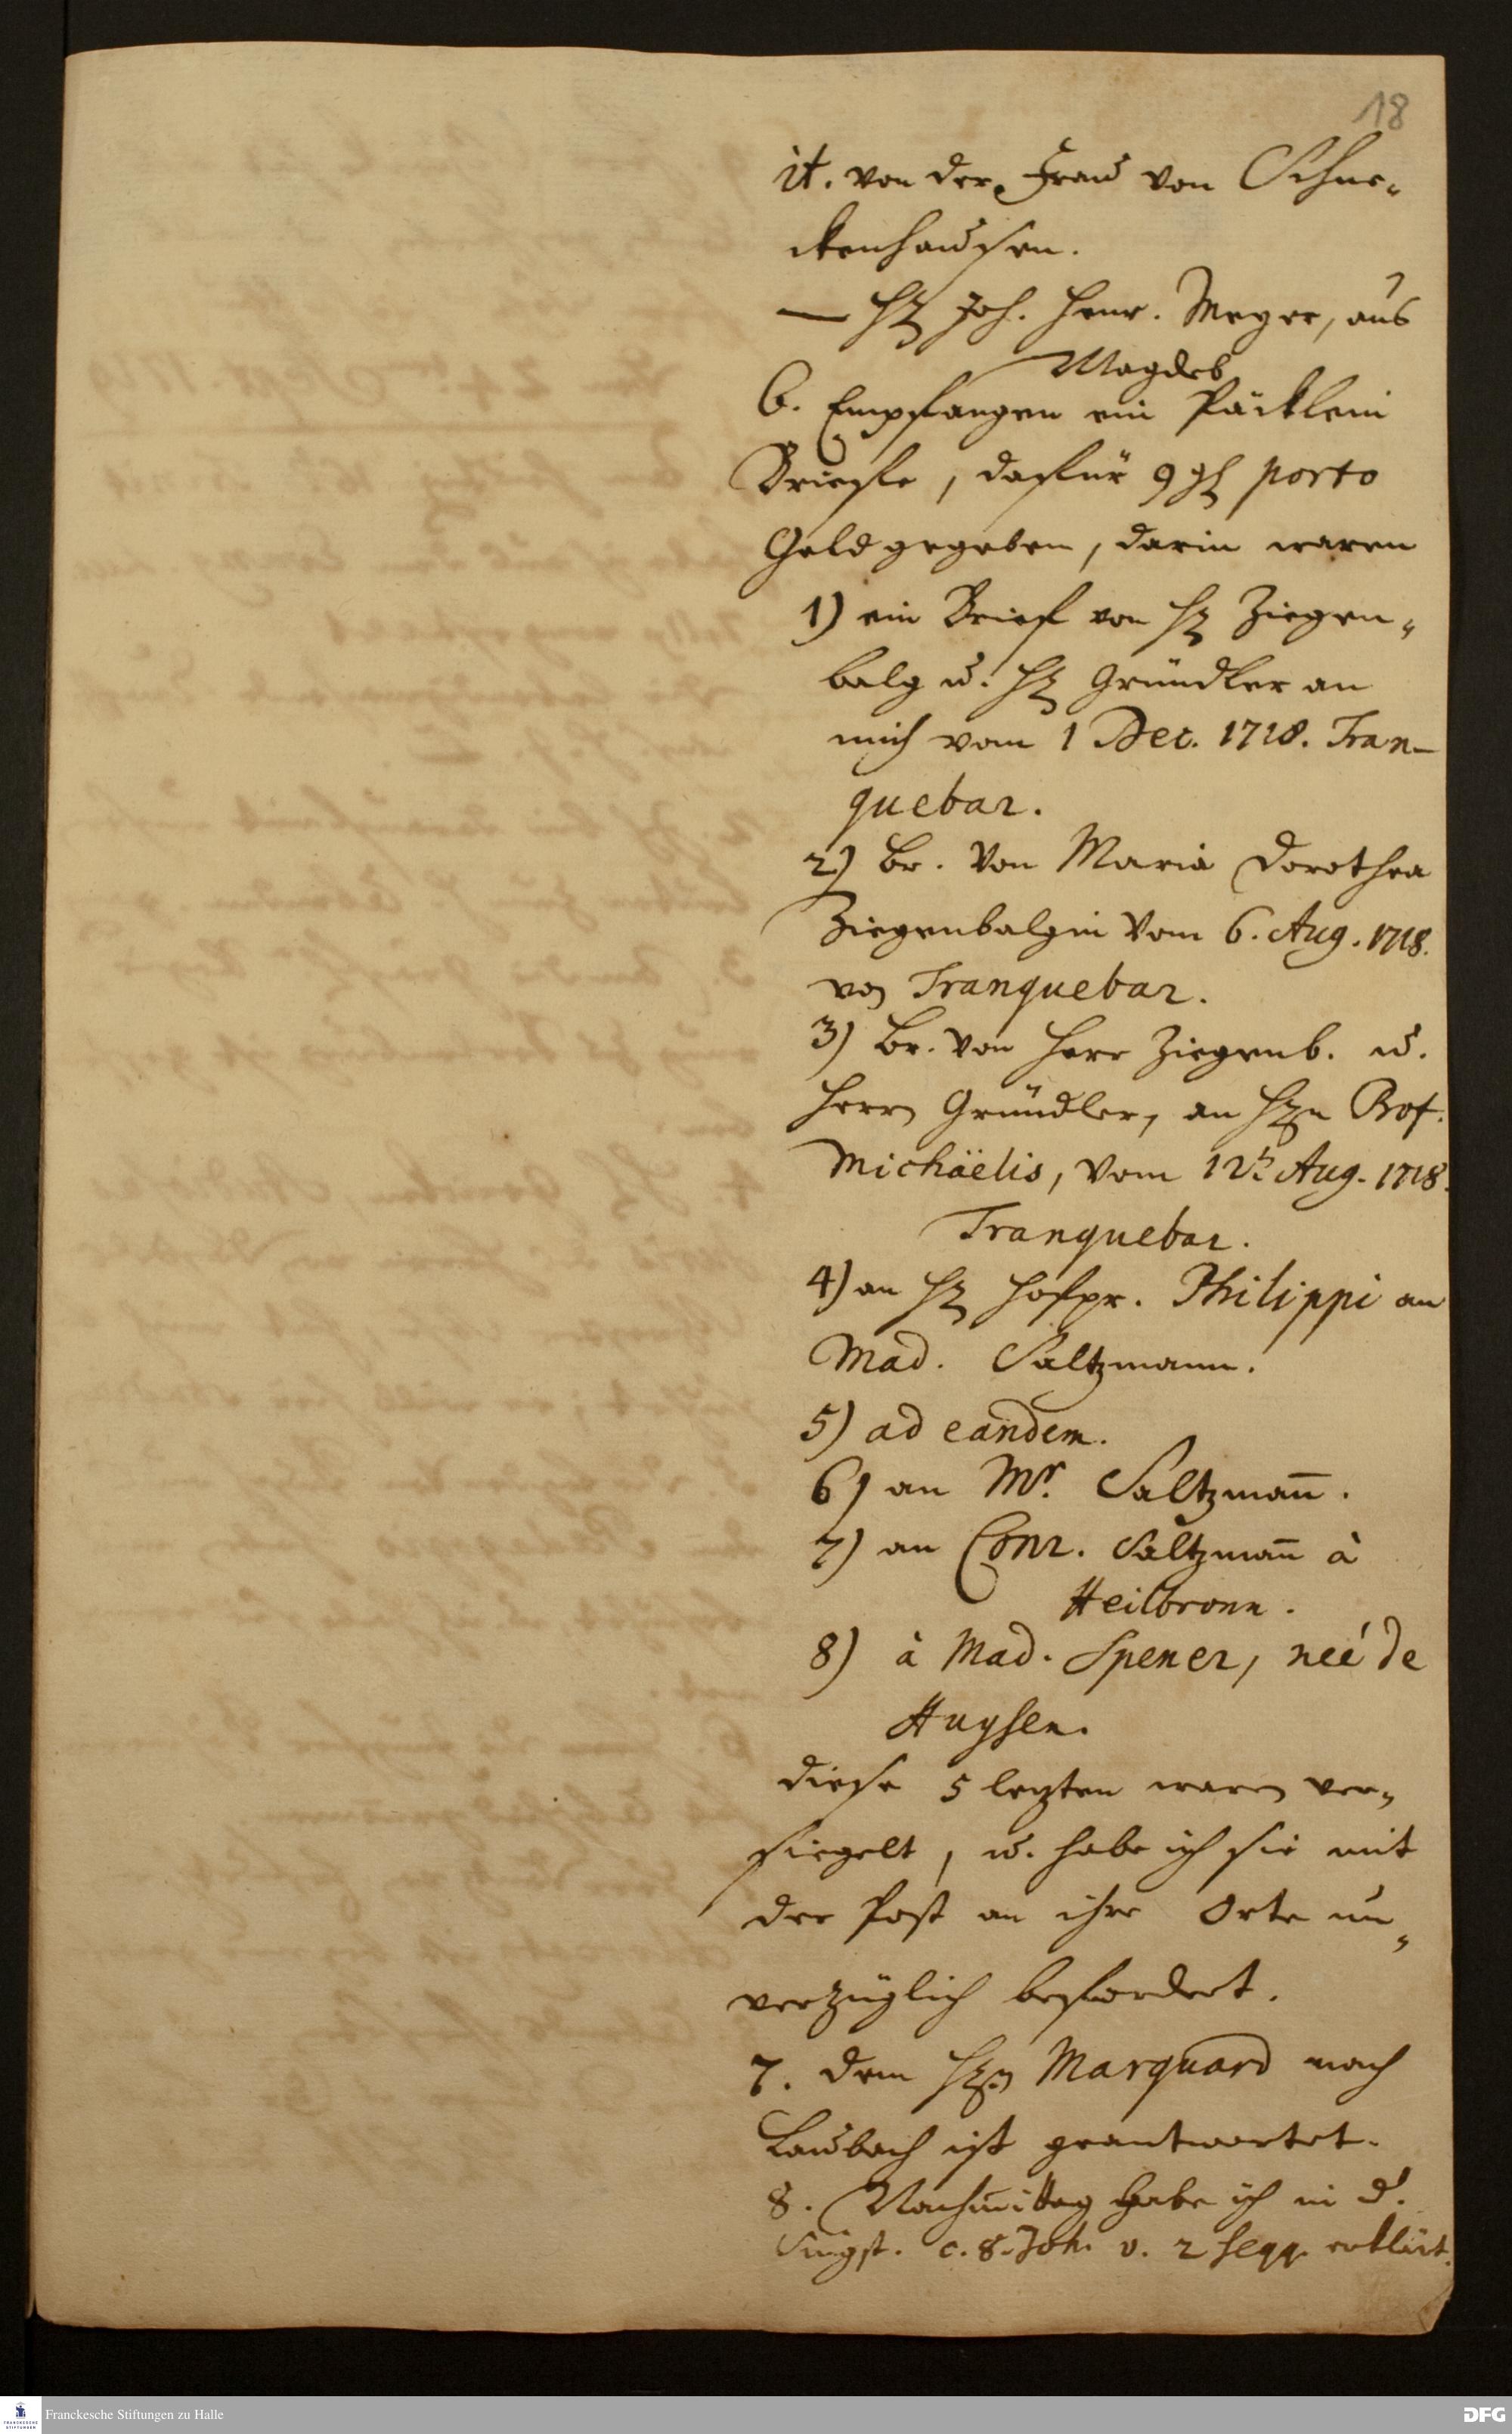 18
it. von der Frau von Schne-
ckenhausen.
— H Joh. Henr. Meyer, aus
Magdeb
6. Empfangen ein Päcklein
Brieffe, dafür 9 gl porto
Geld gegeben, darin waren
1) ein Brief von H Ziegen-
balg u. H Gründler an
mich vom 1 Dec. 1718. Tran-
quebar.
2) Br. von Maria Dorothea
Ziegenbalgin vom 6. Aug. 1718.
von Tranquebar.
3) Br. von Herr Ziegenb. u.
Herrn Gründler, an Hn Prof.
Michäelis, vom 12t Aug. 1718.
Tranquebar.
4) an H Hofpr. Philippi an
Mad. Saltzmann.
5) ad eandem.
6) an Mr. Saltzmañ.
7) an Conr. Saltzmañ à
Heilbronn.
8) à Mad. Spener, neé de
Huysen.
diese 5 letzten waren ver-
siegelt, u. habe ich sie mit
der Post an ihre Orte un-
verzüglich befordert.
7. dem Hn Marquard nach
Laubach ist geantwortet.
8. Nachmittag habe ich in d.
Singst. c. 8. Joh. v. 2 seqq. erklärt.
Franckesche Stiftungen zu Halle
FRANCKESCHE STIFTUNGEN
DFG